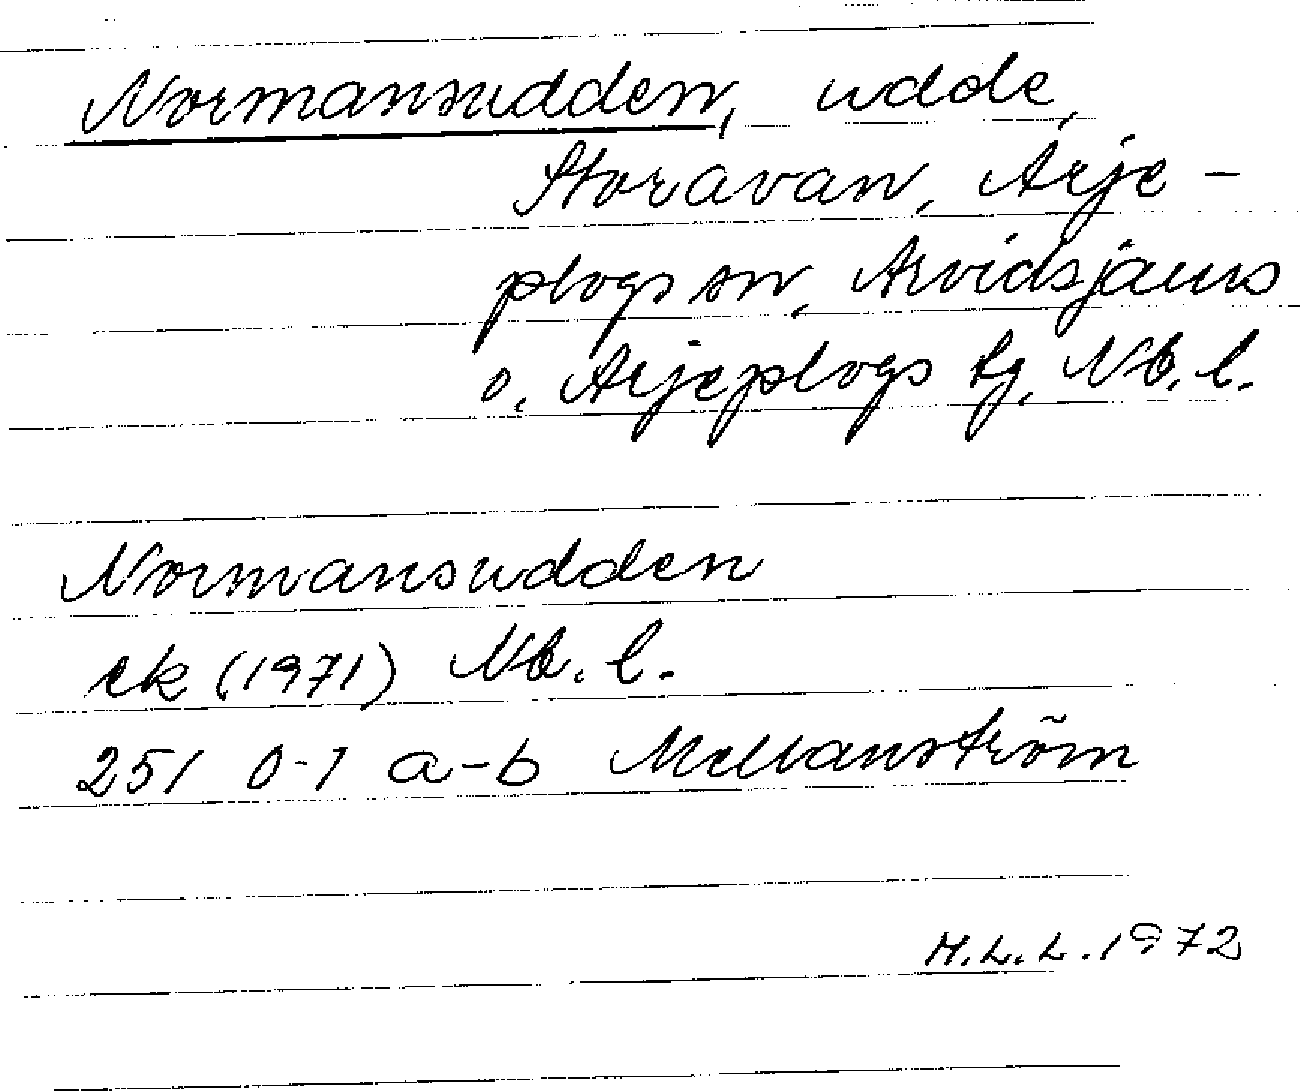 Normansudden, udde,
Storavan, Arje-
plogs sn, Arvidsjaurs
o. Arjeplogs tg, Nb. l.
Normansudden
ek (1971) Nb. l.
251 0-1 a-b Mellanström
M.L.L. 1972